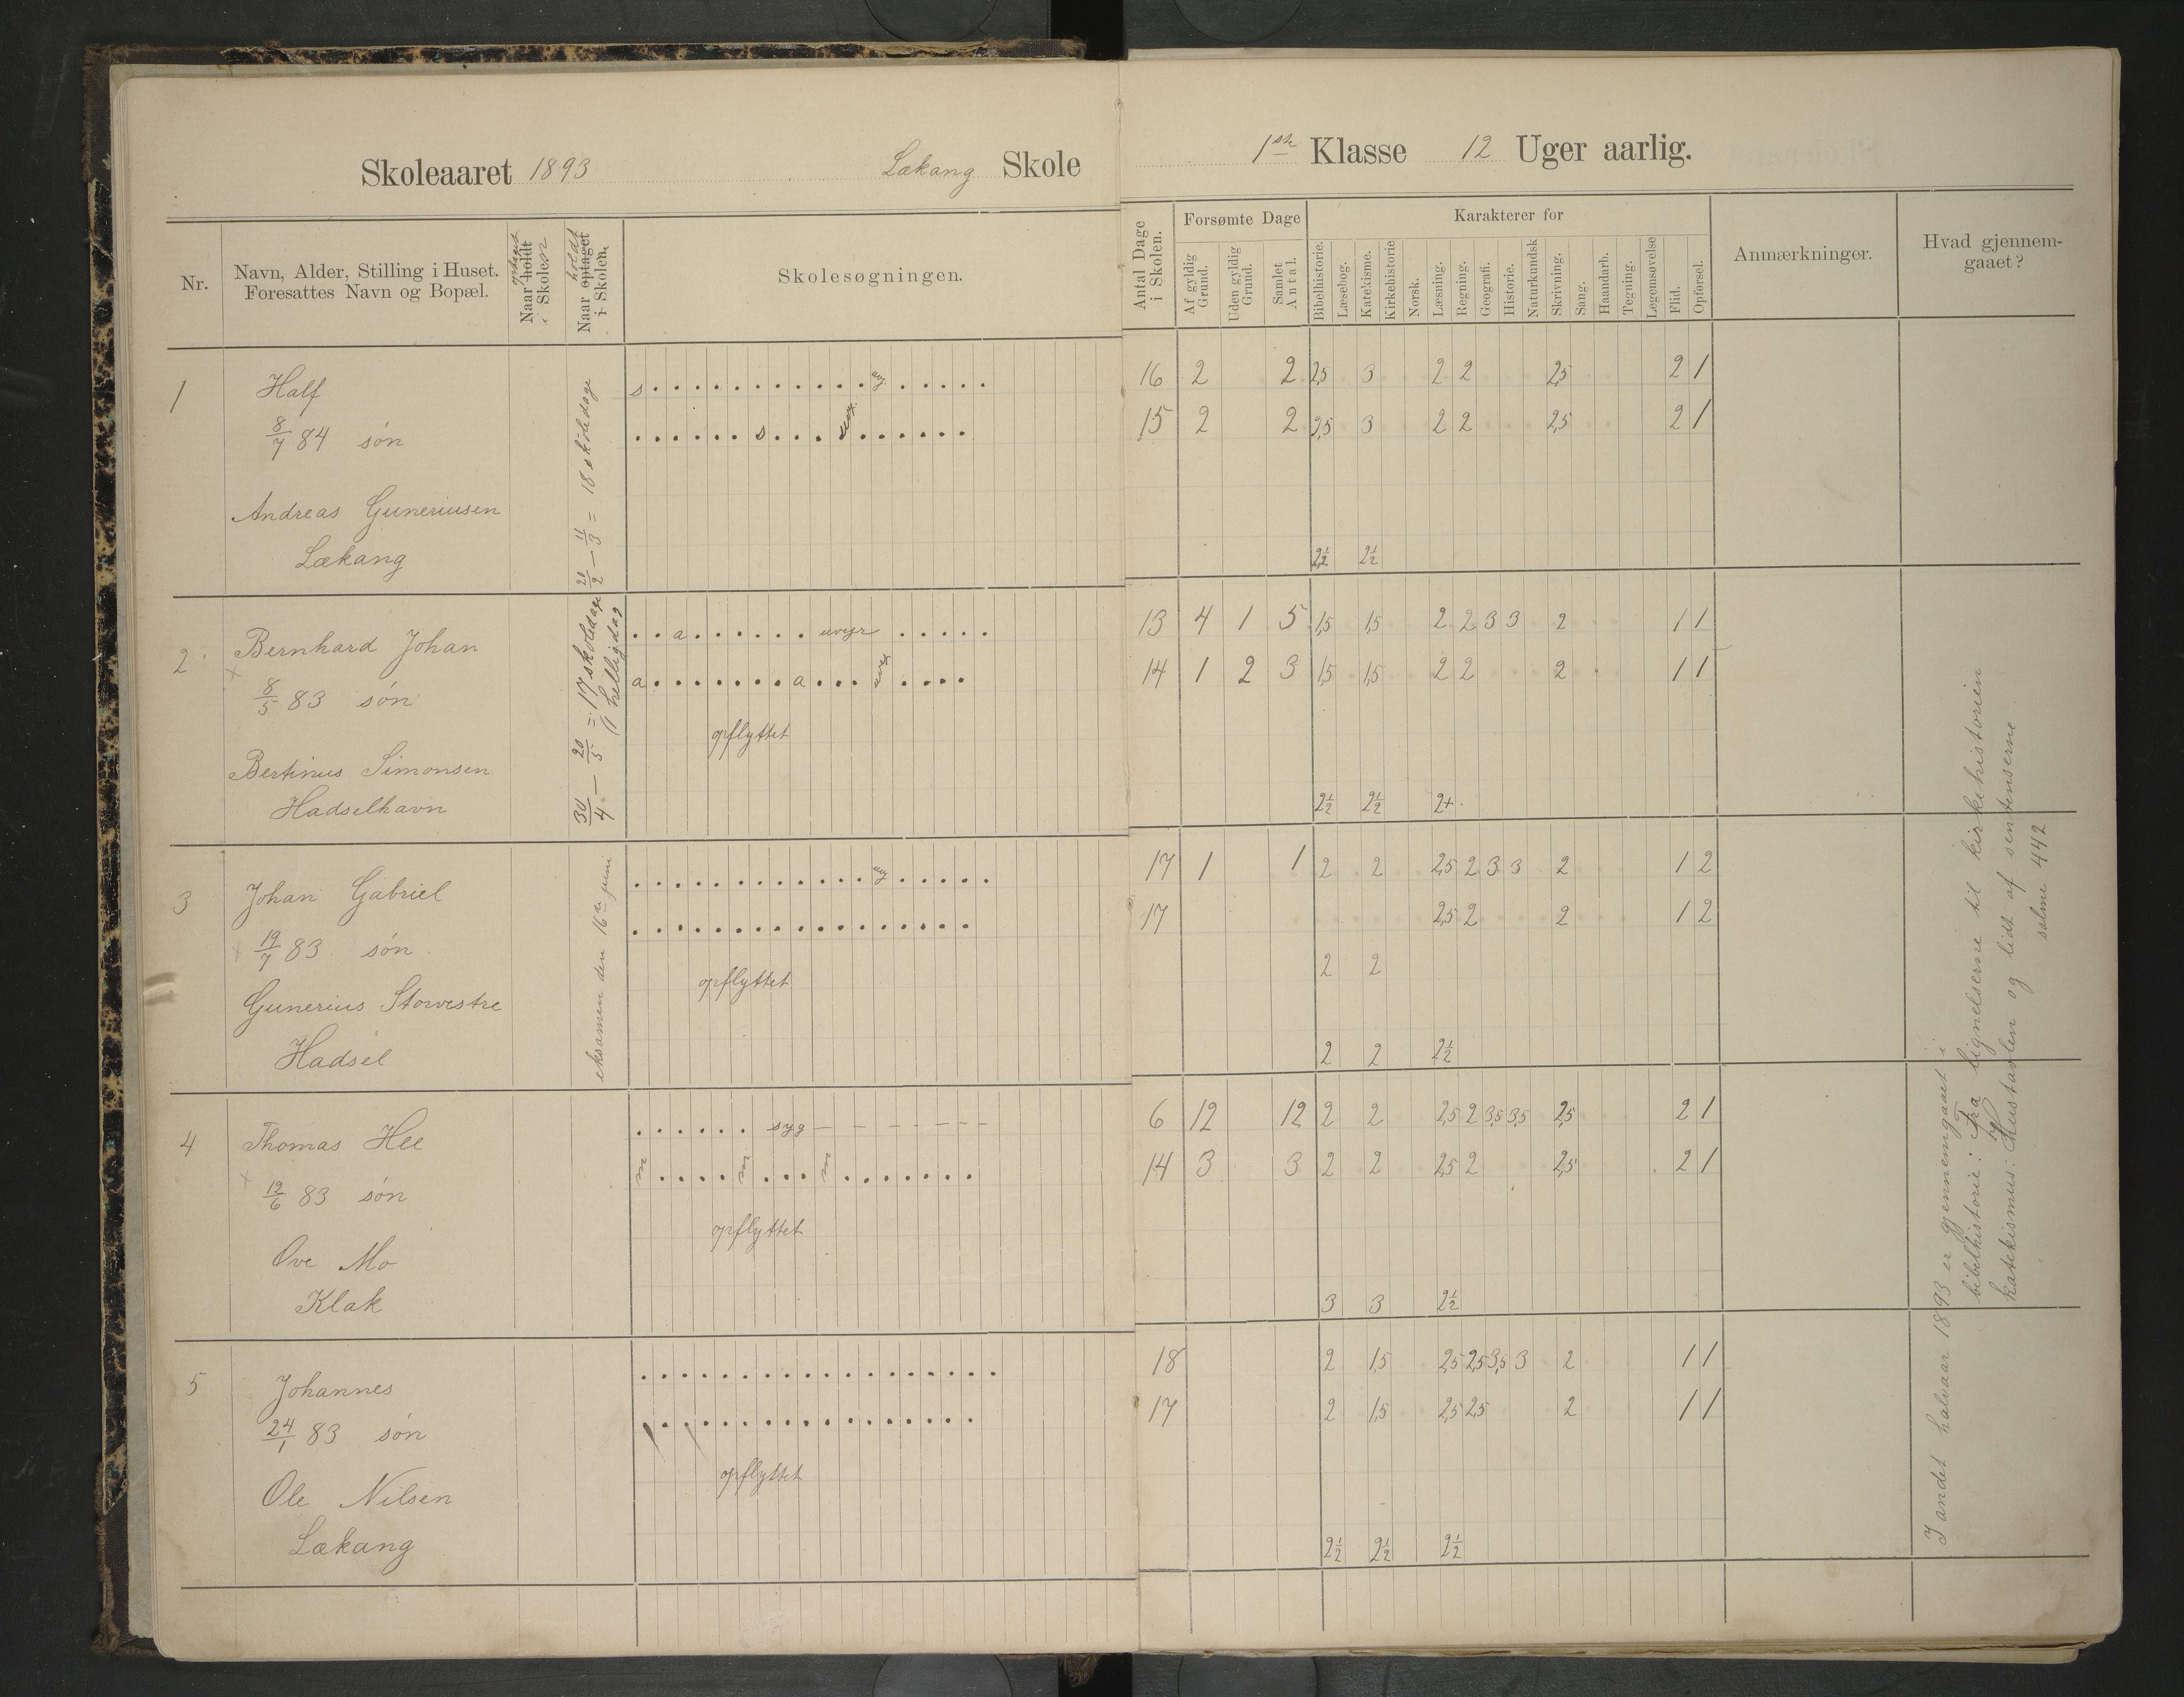 Skoleaaret 1893 Lækang Skole
1ste Klasse 12 Uger aarlig.
Nr.
Navn, Alder, Stilling i Huset.
Foresattes Navn og Bopæl.
Naar holdt
i Skolen
Naar optaget holdt
i Skolen.
Skolesøgningen.
Antal Dage
i Skolen.
Forsømte Dage
Af gyldig
Grund.
Uden gyldig
Grund.
Samlet
Antal.
Karakterer for
Bibelhistorie.
Læsebog.
Katekisme.
Kirkehistorie
Norsk.
Læsning.
Regning.
Geografi.
Historie.
Naturkundsk
Skrivning.
Sang.
Haandarb.
Tegning.
Legemsøvelse
Flid.
Opførsel.
Anmærkninger.
Hvad gjennem-
gaaet?
20/2 – 11/3 = 18 skoledage
30/4 – 20/5 = 17 skoledage
(1 helligdag
eksamen den 16de juni
1
Half
8/7 84 søn
Andreas Guneriusen
Lækang
s . . . . . . . . . . . . . . . . .
. . . . . . s . . . . . . . . . .
16 2 2 2,5 3 2 2 2,5 2 1
15 2 2 2,5 3 2 2 2,5 2 1
2½ 2½
2
Bernhard Johan
8/5 83 søn
Bertinus Simonsen
Hadselhavn
. . a . . . . . . uveyr . . . . .
a . . . . . . . a . . . . . . .
opflyttet
13 4 1 5 1,5 1,5 2 2 3 3 2 1 1
14 1 2 3 1,5 1,5 2 2 2 1 1
2½ 2½ 2+
3
Johan Gabriel
19/7 83 søn
Gunerius Storvestre
Hadsel
. . . . . . . . . . . . . . . . .
. . . . . . . . . . . . . . . . .
opflyttet
17 1 1 2 2 2,5 2 3 3 2 1 2
17 2,5 2 2 1 2
2 2
2 2 2½
4
Thomas Hee
12/6 83 søn
Ove Mo
Klak
. . . . . . syg – – – – – – –
m . . . . m . . . m . . . . . . .
opflyttet
6 12 12 2 2 2,5 2 3,5 3,5 2,5 2 1
14 3 3 2 2 2,5 2 2,5 2 1
3 3 2½
5
Johannes
24/1 83 søn
Ole Nilsen
Lækang
. . . . . . . . . . . . . . . . . .
. . . . . . . . . . . . . . . . .
opflyttet
18 2 1,5 2,5 2,5 3,5 3 2 1 1
17 2 1,5 2,5 2,5 2 1 1
2½ 2½ 2½
I andet halvaar 1893 er gjennemgaaet i
bibelhistorie: Fra lignelserne til kirkehistorien
katekismus: Hustavlen og lidt af sentenserne
salme 442